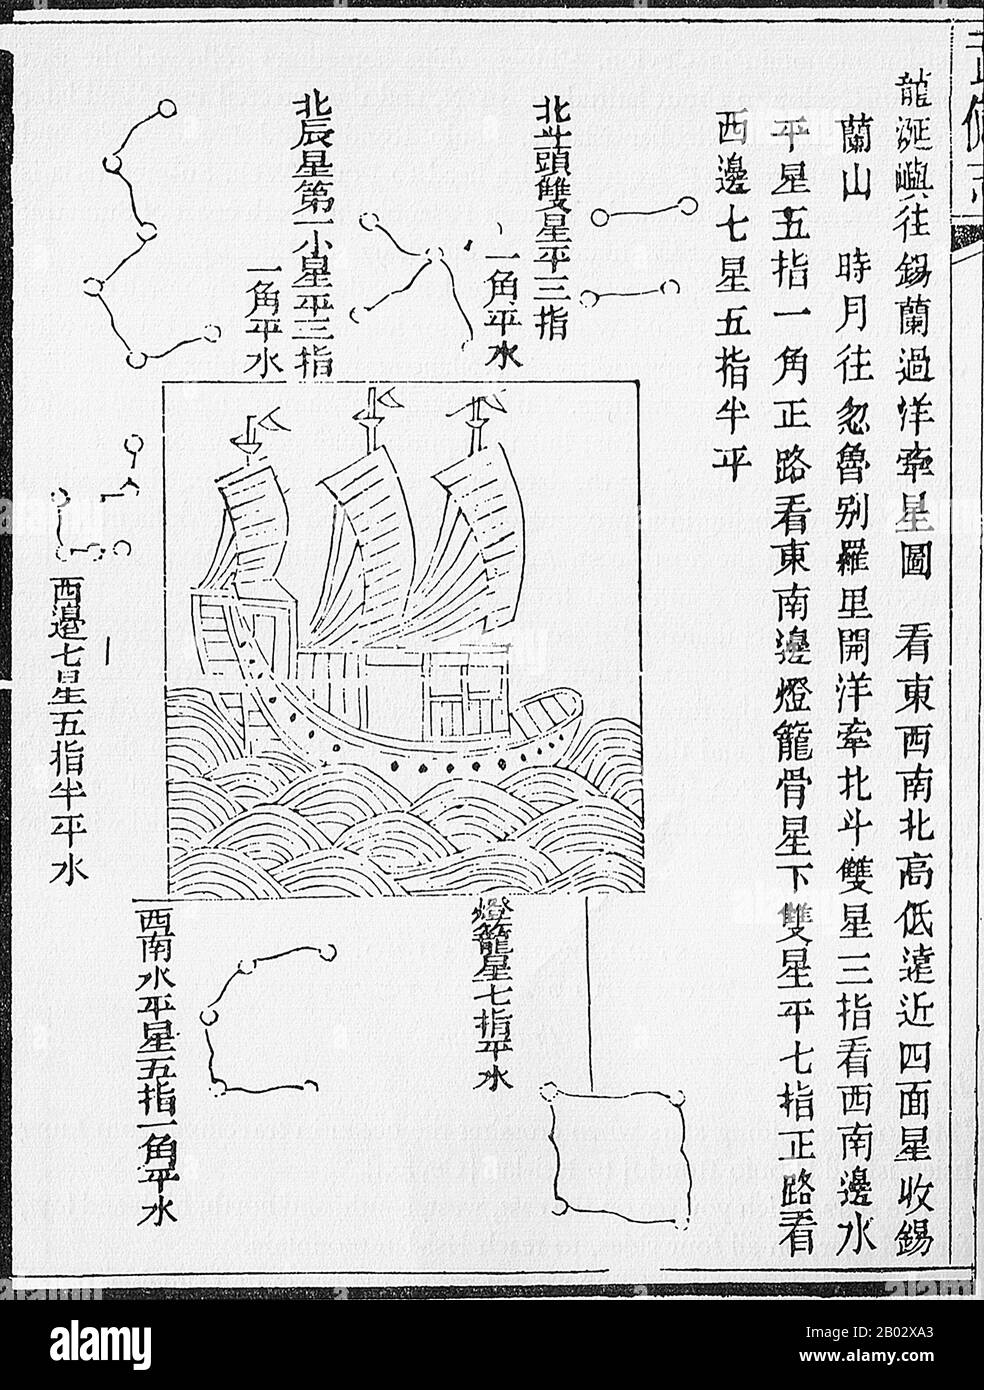 龍涎嶼往錫蘭過洋牽星圖 看東西南北高低遠近四面星收錫
蘭山 時月往忽魯別羅里開洋牽北斗雙星三指看西南邊水
平星五指一角正路看東南邊燈籠骨星下雙星平七指正路看
西邊七星五指半平
北斗頭雙星平三指
一角平水
北辰星第一小星平三指
一角平水
西邉七星五指半平水
燈籠星七指平水
西南水平星五指一角平水
alamy
Image ID: 2B02XA3
www.alamy.com